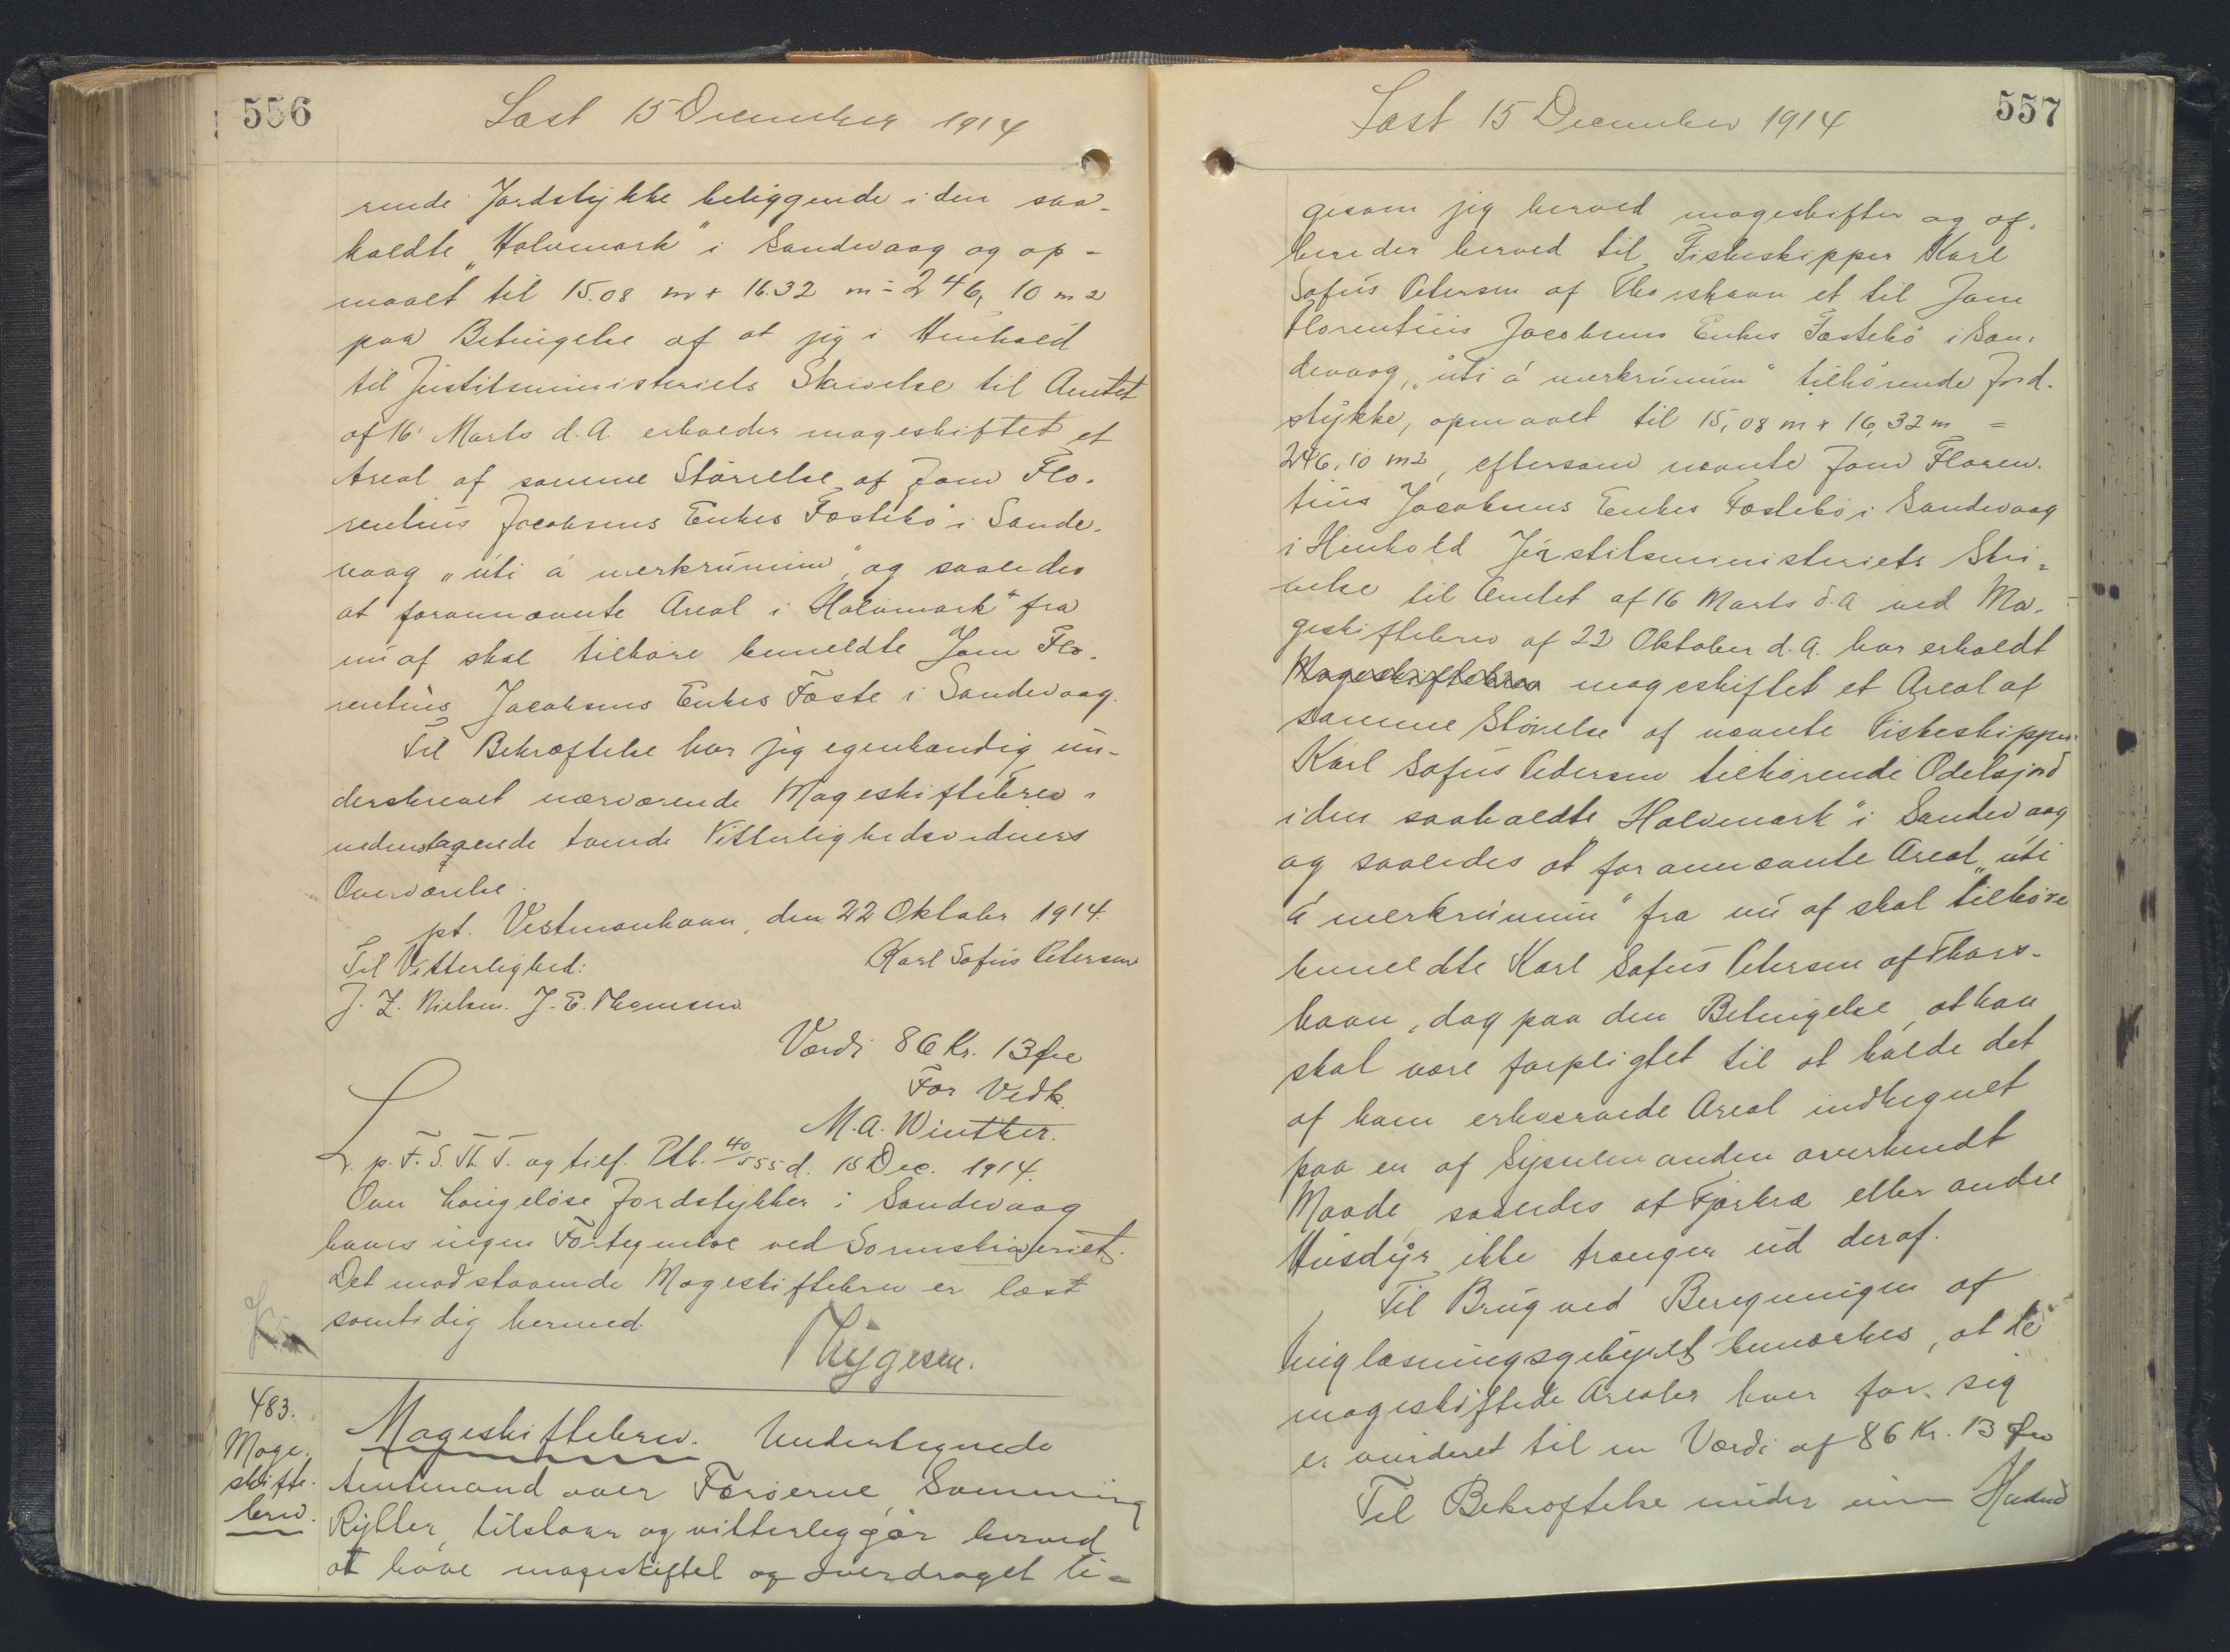 556
Læst 15 December 1914
rende Jordstykke beliggende i den saa-
kaldte "Halvmark" i Sandevaag og op-
maalt til 15.08 m + 16.32 m = 246,10 m2
paa Betingelse af at jeg i Henhold
til Justitsministeriets Skrivelse til Amtet
af 16' Marts d.A. erholder mageskiftet et
Areal af samme Størrelse af Jom Flo-
rentius Jacobsens Enkes Fæstebø i Sande-
vaag "úti á merkrúnùm", og saaledes
at forannævnte Areal i Halvmark" fra
nu af skal tilhøre bemeldte Jom Flo-
rentius Jacobsens Enkes Fæste i Sandevaag.
Til Bekræftelse har jeg egenhændig un-
derskrevet nærværende Mageskiftebrev i
nedenstaaende tvende Vitterlighedsvidners
Overværelse.
pt. Vestmanhavn, den 22 Oktober 1914.
Til Vitterlighed:
Karl Sofus Petersen
J. Z. Nielsen. J. E. Thomsen
Værdi 86 Kr. 13 Øre
For Vedk.
M. A. Winther.
L. p. F. S. Th. T. og tilf. Ptb. 40/555 d. 15 Dec. 1914.
Over haugeløse Jordstykker i Sandevaag
haves ingen Fortegnelse ved Sorenskriveriet.
Det modstaaende Mageskiftebrev er læst
samtidig hermed.
Thygesen.
483.
Mage-
skifte-
brev.
Mageskiftebrev. Undertegnede
Amtmand over Færøerne, Svenning
Rytter, tilstaar og vitterleggør herved
at have mageskiftet og overdraget li-
557
Læst 15 December 1914
gesom jeg herved mageskifter og af-
hender herved til Fiskeskipper Karl
Sofus Petersen af Thorshavn et til Jom
Florentius Jacobsens Enkes Fæstebø i San-
devaag, "úti á merkrúnùm" tilhørende Jord-
stykke, opmaalt til 15,08 m + 16,32 m =
246,10 m2, eftersom nævnte Jom Floren-
tius Jacobsens Enkes Fæstebø i Sandevaag
i Henhold Justitsministeriets Skri-
velse til Amtet af 16 Marts d.A ved Ma-
geskiftebrev af 22 Oktober d.A. har erholdt
Mageskiftebrev mageskiftet et Areal af
samme Størrelse af nævnte Fiskeskipper
Karl Sofus Pedersen tilhørende Odelsjord
i den saakaldte "Halvmark" i Sandevaag
og saaledes at forannævnte Areal "úti
á merkrúnùm" fra nu af skal tilhøre
bemeldte Karl Sofus Petersen af Thors-
havn, dog paa den Betingelse, at han
skal være forpligtet til at holde det
af ham erhvervede Areal indhegnet
paa en af Sysselmanden anerkendt
Maade, saaledes at Fjerkræ eller andre
Husdyr ikke trænger ud deraf.
Til Brug ved Beregningen af
Tinglæsningsgebyret bemærkes, at de
mageskiftede Arealer hver for sig
er vurderet til en Værdi af 86 Kr. 13 Øre
Til Bekræftelse under min Haand